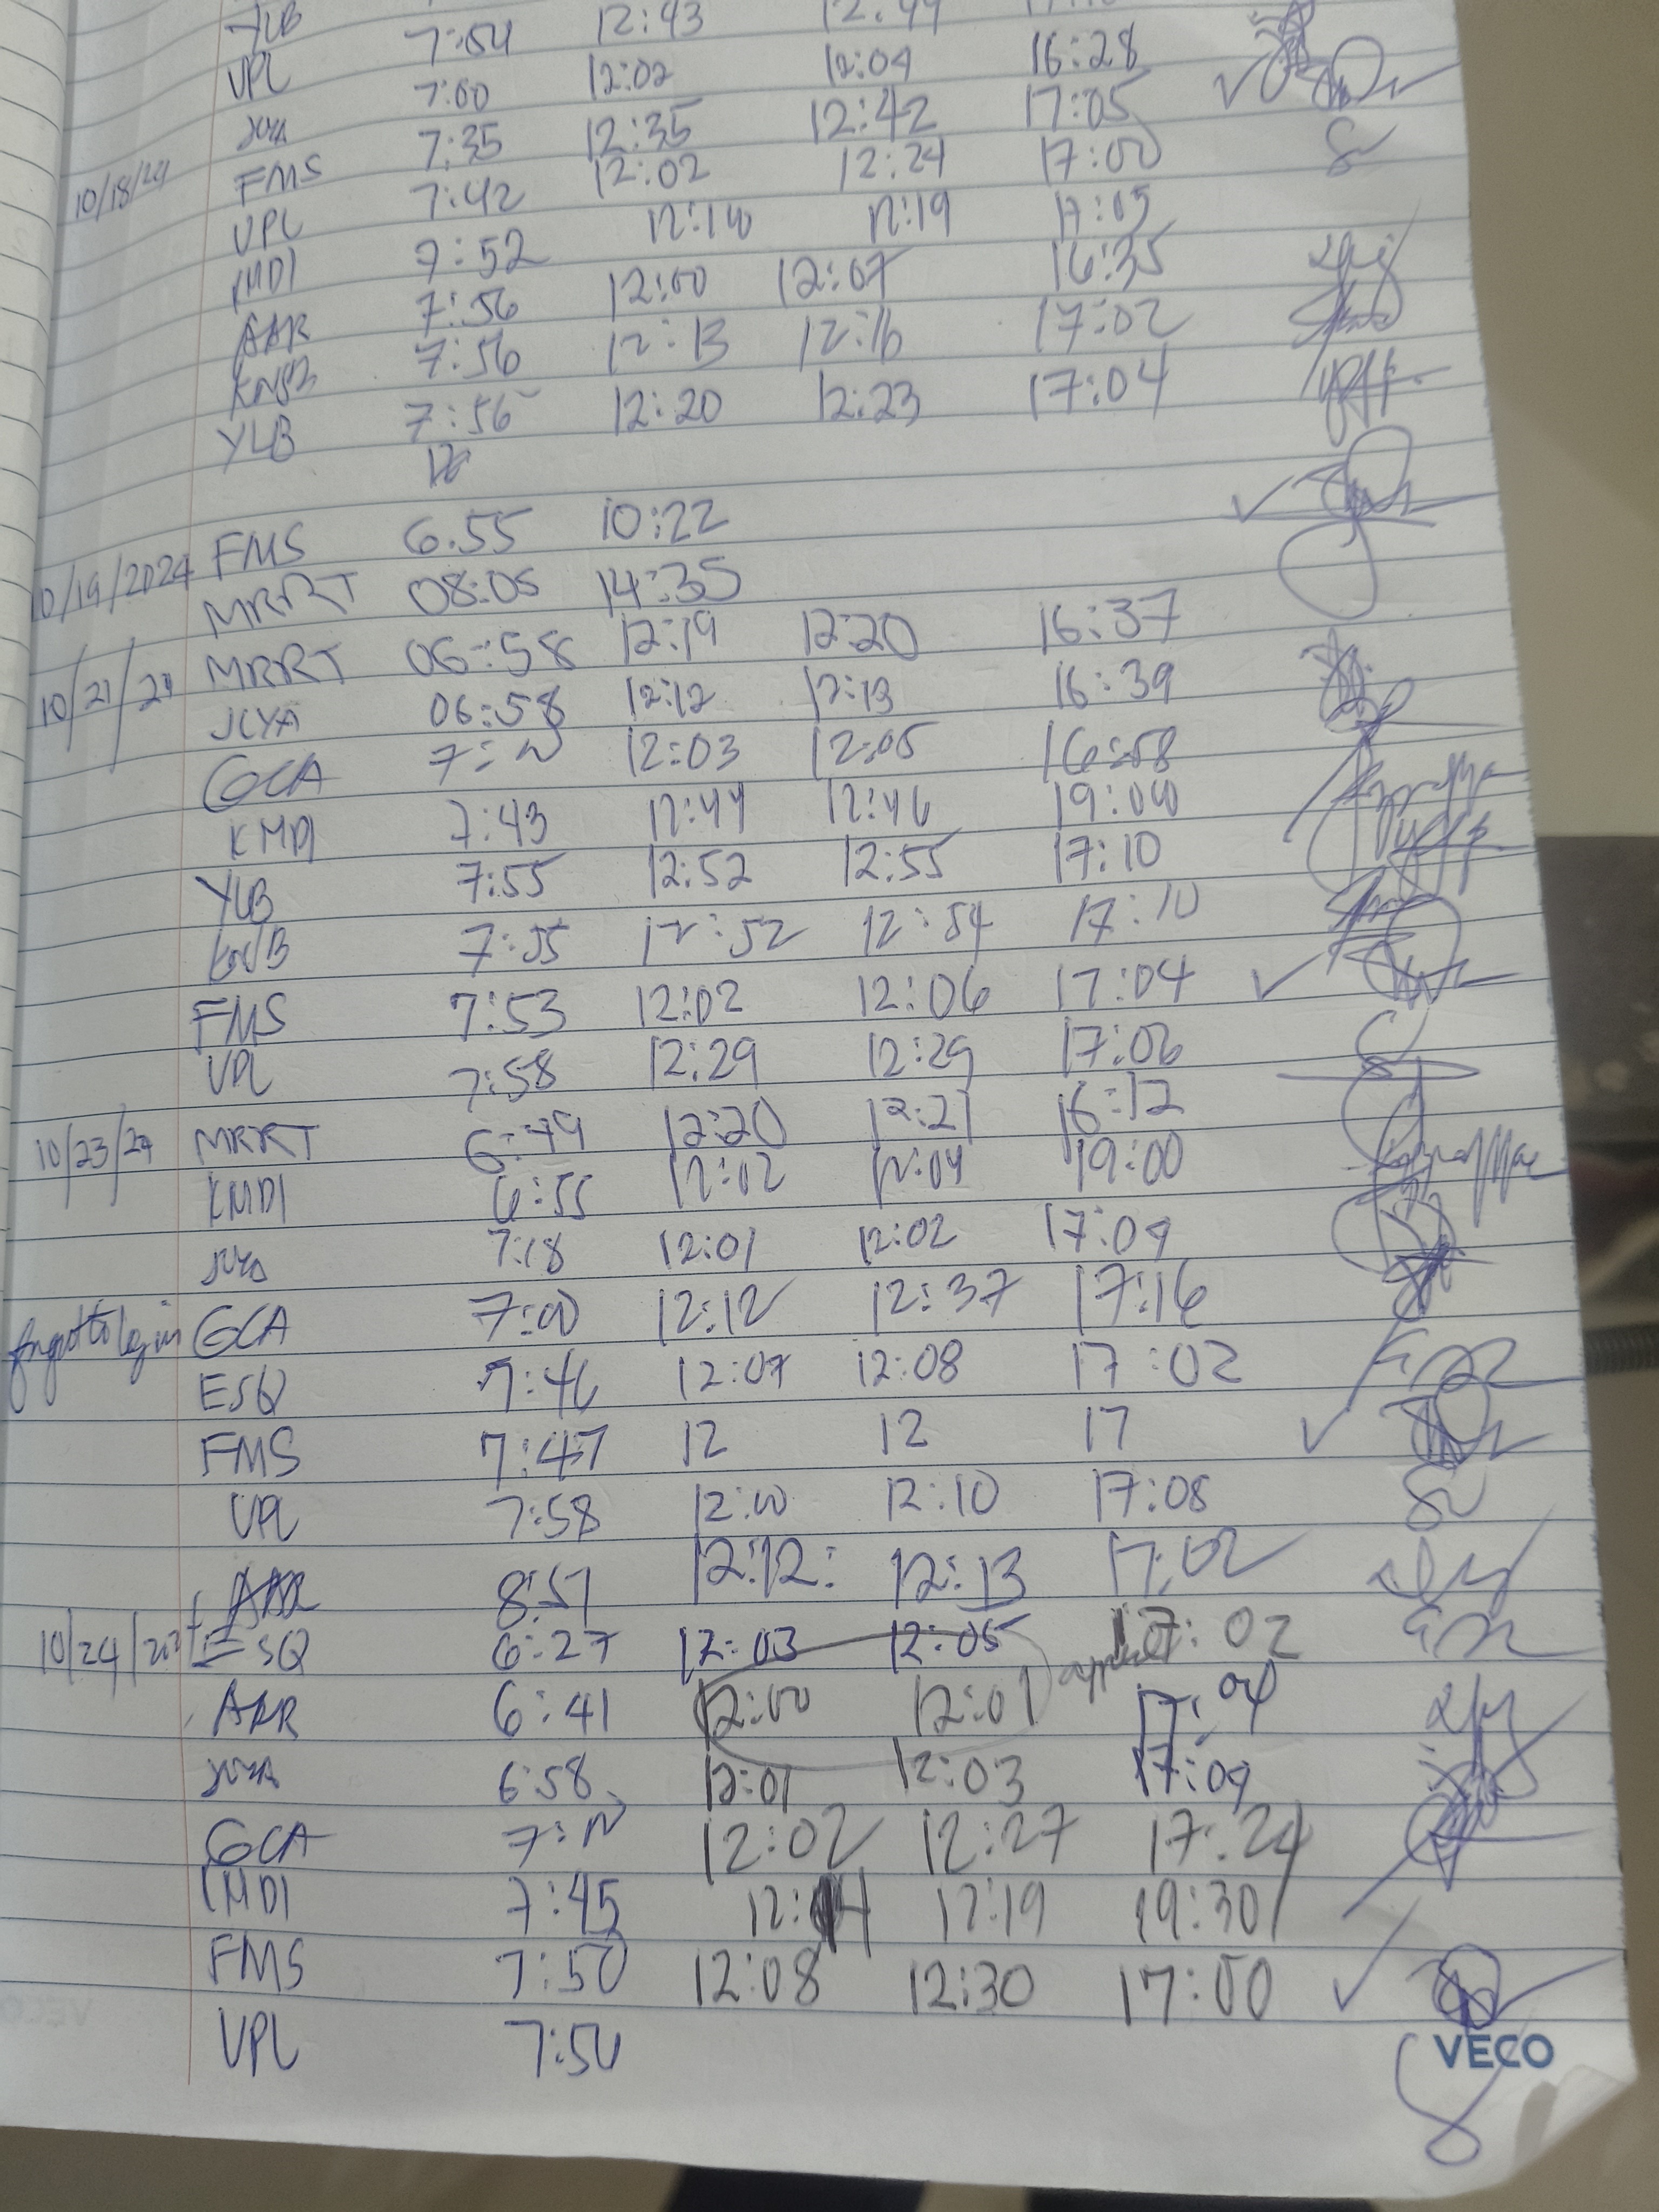 YLB 7:54 12:43 12:44
VPL 7:00 12:02 12:04 16:28
7:35 12:35 12:42 17:05
10/18/24 FMS 7:42 12:02 12:24 17:00
VPL 7:52 12:10 12:19 17:05
KMDI 7:56 12:00 12:07 16:35
AAR 7:56 12:13 12:16 17:02
KNSB 7:56 12:20 12:23 17:04
YLB
10/19/2024 FMS 6.55 10:22
MRRT 08:05 14:35
10/21/24 MRRT 06:58 12:19 12:20 16:37
JCYA 06:58 12:12 12:13 16:39
GCA 7: 12:03 12:05 16:58
KMDI 7:43 12:44 12:46 19:00
YLB 7:55 12:52 12:55 17:10
7:55 12:52 12:54 17:10
FMS 7:53 12:02 12:06 17:04
VPL 7:58 12:29 12:29 17:06
10/23/24 MRRT 6:49 12:20 12:21 16:12
KMDI 6:55 12:02 12:04 19:00
7:18 12:01 12:02 17:09
forgot to log in GCA 7:00 12:12 12:37 17:16
ESQ 7:46 12:07 12:08 17:02
FMS 7:47 12 12 17
VPL 7:58 12:10 17:08
AAR 8:51 12:12: 12:13 17:02
10/24/2024 ESQ 6:27 12:03 12:05 17:02
AAR 6:41 12:00 12:01 17:04
6:58 12:01 12:03 17:09
GCA 7: 12:02 12:27 17:24
KMDI 7:45 12:14 12:19 19:30
FMS 7:50 12:08 12:30 17:00
VPL 7:50
VECO